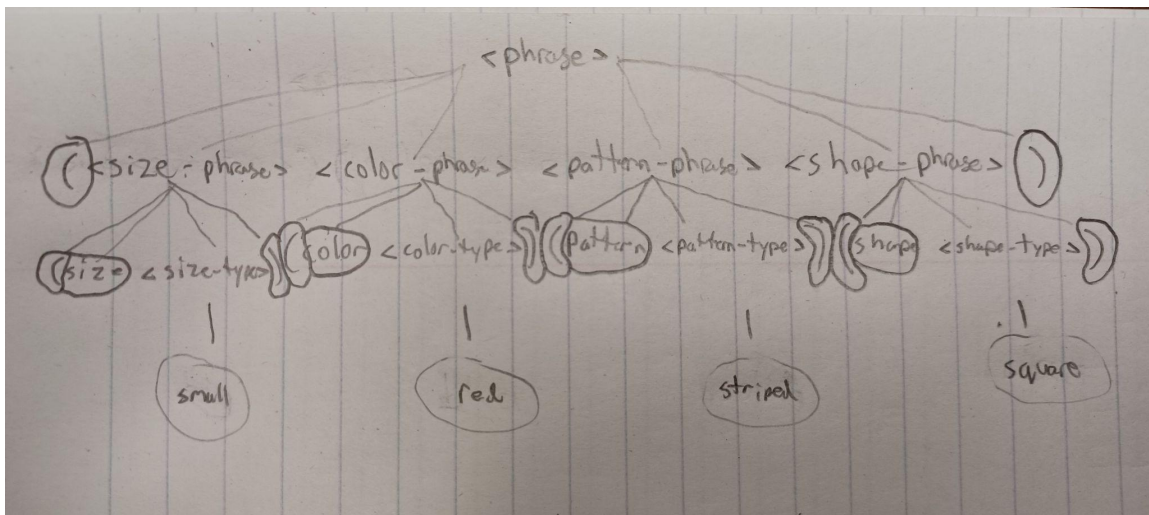 <phrase>
( <size-phrase> <color-phrase> <pattern-phrase> <shape-phrase> )
( size <size-type> ) ( color <color-type> ) ( pattern <pattern-type> ) ( shape <shape-type> )
small red striped square